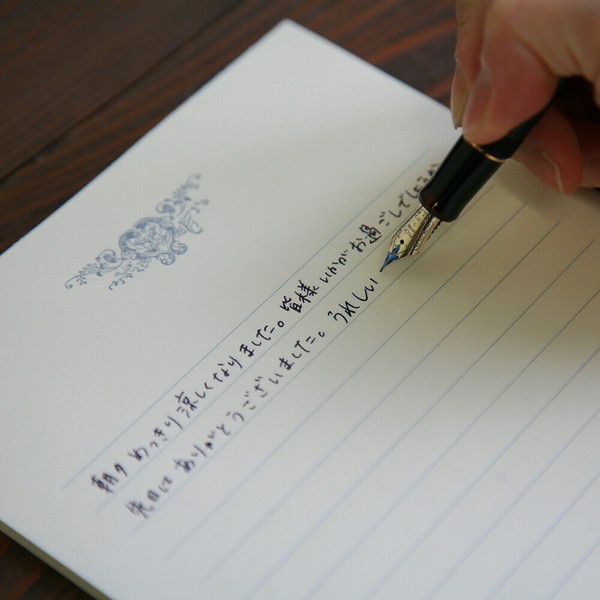 朝夕めっきり涼しくなりました。皆様いかがお過ごしでしょうか
先日はありがとうございました。うれしい